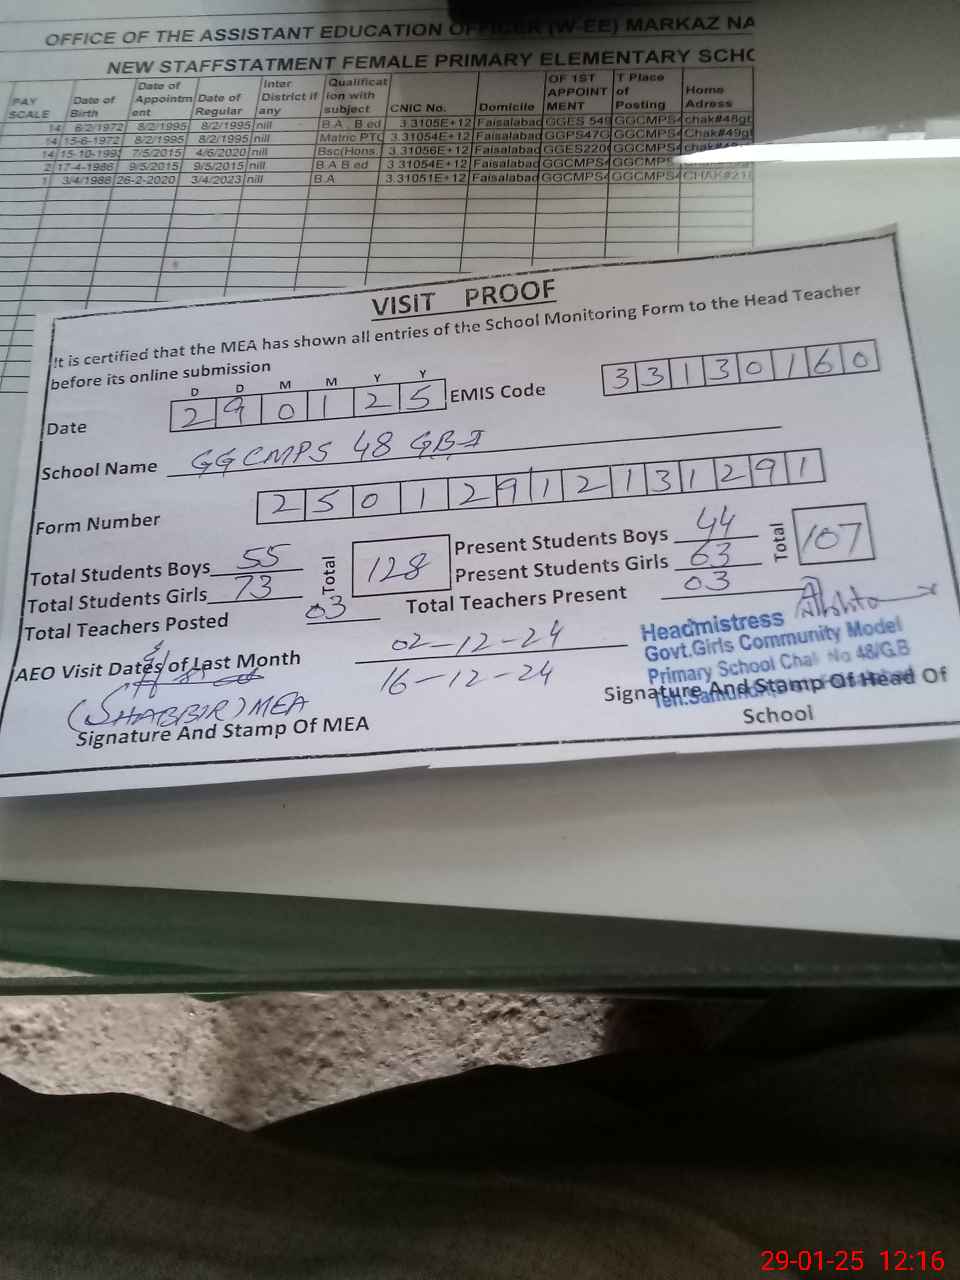 OFFICE OF THE ASSISTANT EDUCATION OFFICER (W-EE) MARKAZ NA
NEW STAFFSTATMENT FEMALE PRIMARY ELEMENTARY SCHO
PAY SCALE Date of Birth Date of Appointm ent Date of Regular Inter District if any Qualificat ion with subject CNIC No. Domicile OF 1ST APPOINT MENT T Place of Posting Home Adress
14 6/2/1972 8/2/1995 8/2/1995 nill B.A , B.ed 3.3105E+12 Faisalabad GGES 549 GGCMPS4 chak#48gb
14 15-6-1972 8/2/1995 8/2/1995 nill Matric PTC 3.31054E+12 Faisalabad GGPS47G GGCMPS4 Chak#49gb
14 15-10-199 7/5/2015 4/6/2020 nill Bsc(Hons. 3.31056E+12 Faisalabad GGES220 GGCMPS4
2 17-4-1986 9/5/2015 9/5/2015 nill B.A B.ed 3.31054E+12 Faisalabad GGCMPS4 GGCMPS
1 3/4/1986 26-2-2020 3/4/2023 nill B.A 3.31051E+12 Faisalabad GGCMPS4 GGCMPS4 CHAK#218
VISIT PROOF
It is certified that the MEA has shown all entries of the School Monitoring Form to the Head Teacher
before its online submission
D D M M Y Y
Date 2 9 0 1 2 5 EMIS Code 3 3 1 3 0 1 6 0
School Name GGCMPS 48 GB-I
Form Number 2 5 0 1 2 9 1 2 1 3 1 2 9 1
Total Students Boys 55 Total 128 Present Students Boys 44 Total 107
Total Students Girls 73 Present Students Girls 63
Total Teachers Posted 03 Total Teachers Present 03
AEO Visit Dates of Last Month 02-12-24
16-12-24
Headmistress
Govt.Girls Community Model
Primary School Chak No 48/G.B
(SHABBIR) MEA
Signature And Stamp Of MEA
Signature And Stamp Of Head Of
School
29-01-25 12:16